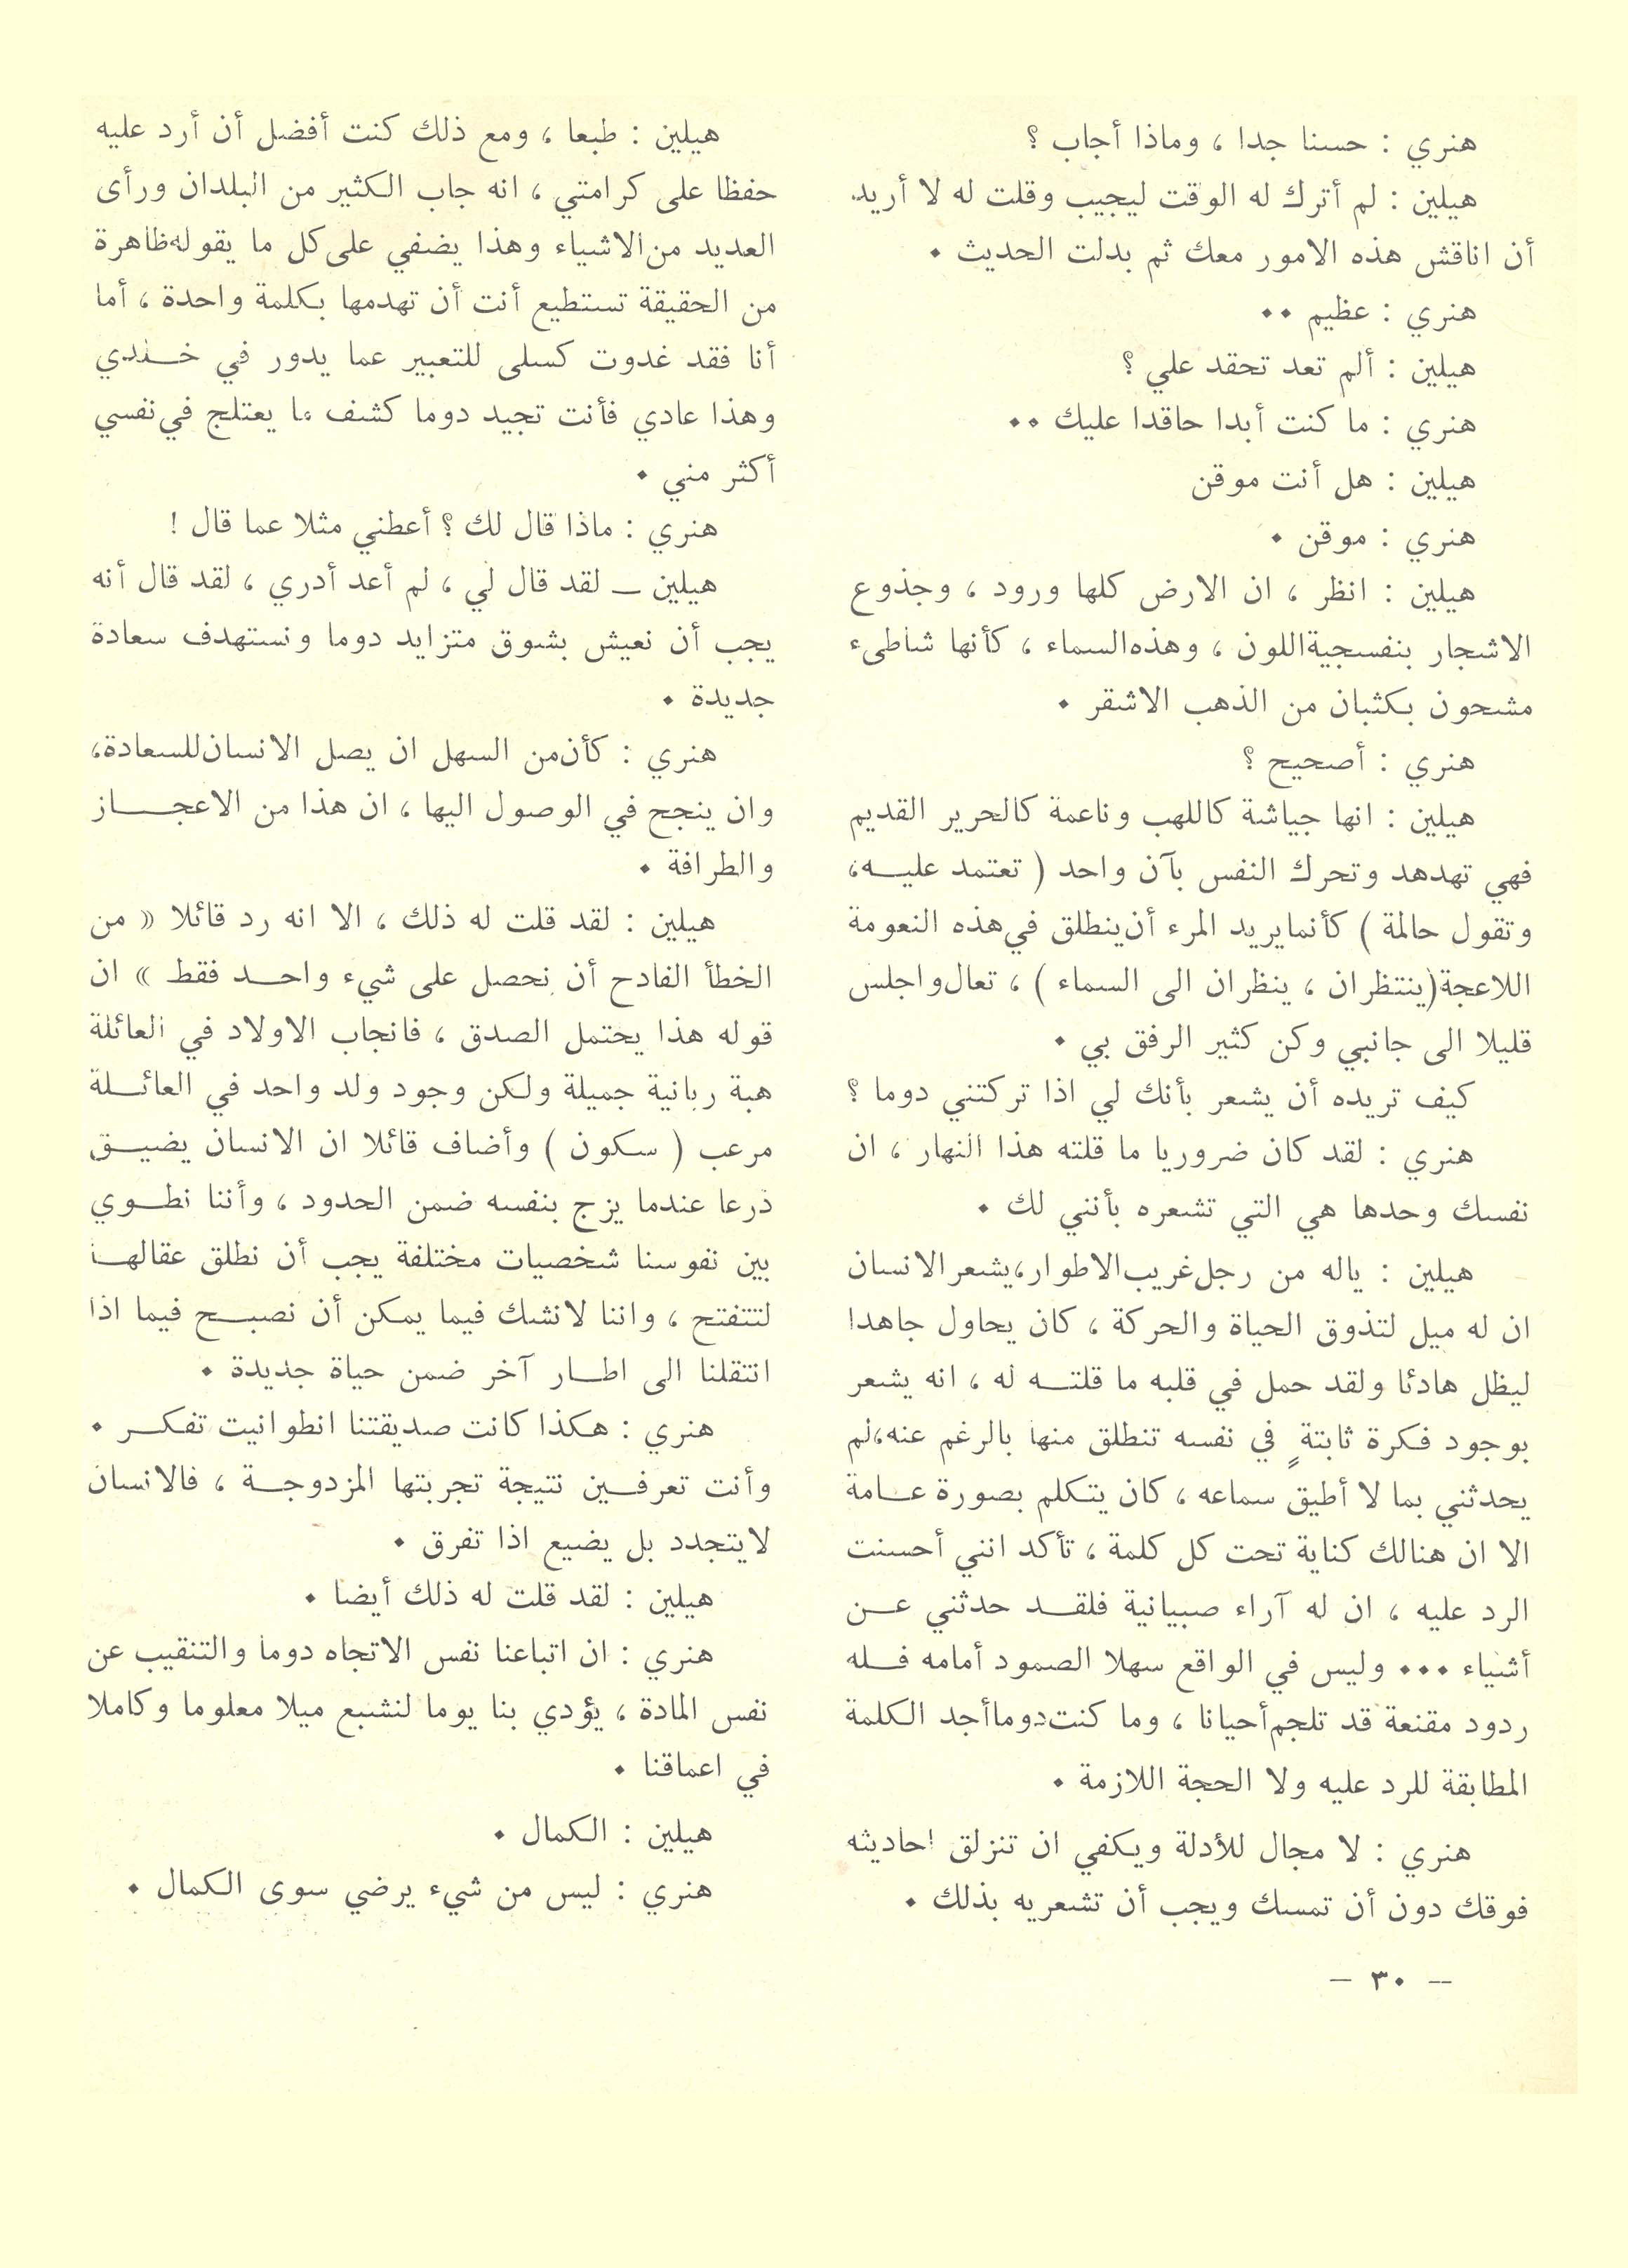 هنري : حسنا جدا ، وماذا أجاب ؟
هيلين : لم أترك له الوقت ليجيب وقلت له لا أريد
أن اناقش هذه الامور معك ثم بدلت الحديث .
هنري : عظيم ..
هيلين : ألم تعد تحقد علي ؟
هنري : ما كنت أبدا حاقدا عليك ..
هيلين : هل أنت موقن
هنري : موقن .
هيلين : انظر ، ان الارض كلها ورود ، وجذوع
الاشجار بنفسجية اللون ، وهذه السماء ، كأنها شاطىء
مشحون بكثبان من الذهب الاشقر .
هنري : أصحيح ؟
هيلين : انها جياشة كاللهب وناعمة كالحرير القديم
فهي تهدهد وتحرك النفس بآن واحد ( تعتمد عليه ،
وتقول حالمة ) كأنما يريد المرء أن ينطلق في هذه النعومة
اللاعجة (ينتظران ، ينظران الى السماء ) ، تعال واجلس
قليلا الى جانبي وكن كثير الرفق بي .
كيف تريده أن يشعر بأنك لي اذا تركتني دوما ؟
هنري : لقد كان ضروريا ما قلته هذا النهار ، ان
نفسك وحدها هي التي تشعره بأنني لك .
هيلين : ياله من رجل غريب الاطوار ، يشعر الانسان
ان له ميل لتذوق الحياة والحركة ، كان يحاول جاهدا
ليظل هادئا ولقد حمل في قلبه ما قلته له ، انه يشعر
بوجود فكرة ثابتةٍ في نفسه تنطلق منها بالرغم عنه ، لم
يحدثني بما لا أطيق سماعه ، كان يتكلم بصورة عامة
الا ان هنالك كناية تحت كل كلمة ، تأكد انني أحسنت
الرد عليه ، ان له آراء صبيانية فلقد حدثني عن
أشياء ... وليس في الواقع سهلا الصمود أمامه فله
ردود مقنعة قد تلجم أحيانا ، وما كنت دوما أجد الكلمة
المطابقة للرد عليه ولا الحجة اللازمة .
هنري : لا مجال للأدلة ويكفي ان تنزلق احاديثه
فوقك دون أن تمسك ويجب أن تشعريه بذلك .
هيلين : طبعا ، ومع ذلك كنت أفضل أن أرد عليه
حفظا على كرامتي ، انه جاب الكثير من البلدان ورأى
العديد من الاشياء وهذا يضفي على كل ما يقوله ظاهرة
من الحقيقة تستطيع أنت أن تهدمها بكلمة واحدة ، أما
أنا فقد غدوت كسلى للتعبير عما يدور في خلدي
وهذا عادي فأنت تجيد دوما كشف ما يعتلج في نفسي
أكثر مني .
هنري : ماذا قال لك ؟ أعطني مثلا عما قال !
هيلين — لقد قال لي ، لم أعد أدري ، لقد قال أنه
يجب أن نعيش بشوق متزايد دوما ونستهدف سعادة
جديدة .
هنري : كأن من السهل ان يصل الانسان للسعادة ،
وان ينجح في الوصول اليها ، ان هذا من الاعجاز
والطرافة .
هيلين : لقد قلت له ذلك ، الا انه رد قائلا « من
الخطأ الفادح أن نحصل على شيء واحد فقط » ان
قوله هذا يحتمل الصدق ، فانجاب الاولاد في العائلة
هبة ربانية جميلة ولكن وجود ولد واحد في العائلة
مرعب ( سكون ) وأضاف قائلا ان الانسان يضيق
ذرعا عندما يزج بنفسه ضمن الحدود ، وأننا نطوي
بين نفوسنا شخصيات مختلفة يجب أن نطلق عقالها
لتتفتح ، واننا لانشك فيما يمكن أن نصبح فيما اذا
انتقلنا الى اطار آخر ضمن حياة جديدة .
هنري : هكذا كانت صديقتنا انطوانيت تفكر .
وأنت تعرفين نتيجة تجربتها المزدوجة ، فالانسان
لايتجدد بل يضيع اذا تفرق .
هيلين : لقد قلت له ذلك أيضا .
هنري : ان اتباعنا نفس الاتجاه دوما والتنقيب عن
نفس المادة ، يؤدي بنا يوما لنشبع ميلا معلوما وكاملا
في اعماقنا .
هيلين : الكمال .
هنري : ليس من شيء يرضي سوى الكمال .
— ٣٠ —